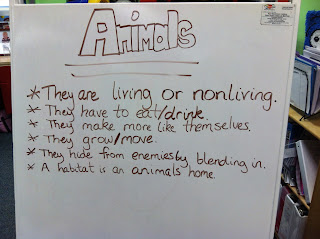 Animals
* They are living or nonliving.
* They have to eat/drink.
* They make more like themselves.
* They grow/move.
* They hide from enemies by blending in.
* A habitat is an animals home.